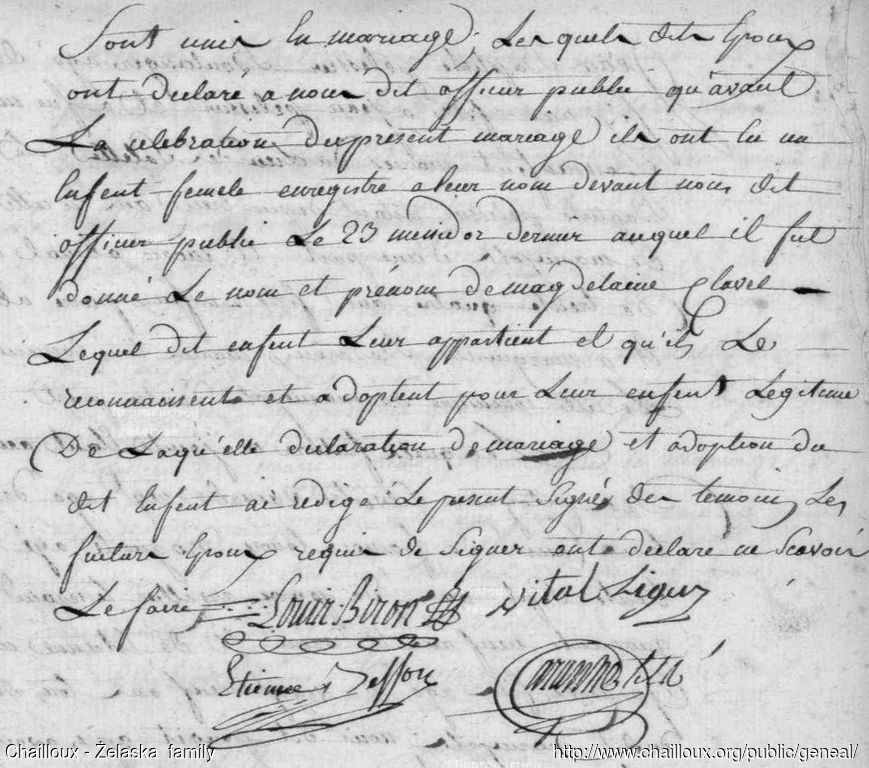 Sont unis En mariage, Les quels dits Epoux
ont declaré a nous dit officier public qu'avant
La celebration du present mariage ils ont Eu un
Enfent femele enregistre a leur nom devant nous dit
officier public Le 23 messidor dernier auquel il fut
donné Le nom et prénom de magdelaine Clavel
Lequel dit enfent Leur appartient et qu'ils Le
reconnaisent et adoptent pour Leur enfent Legitime
De Laqu'elle declaration de mariage et adoption du
dit Enfent ai redigé Le present Signé des temoins Les
futurs Epoux requis de Signer ont declare ne Scavoir
Le faire
Louis Biron Vital Liguz
Etienne
Chailloux - Żelaska family http://www.chailloux.org/public/geneal/